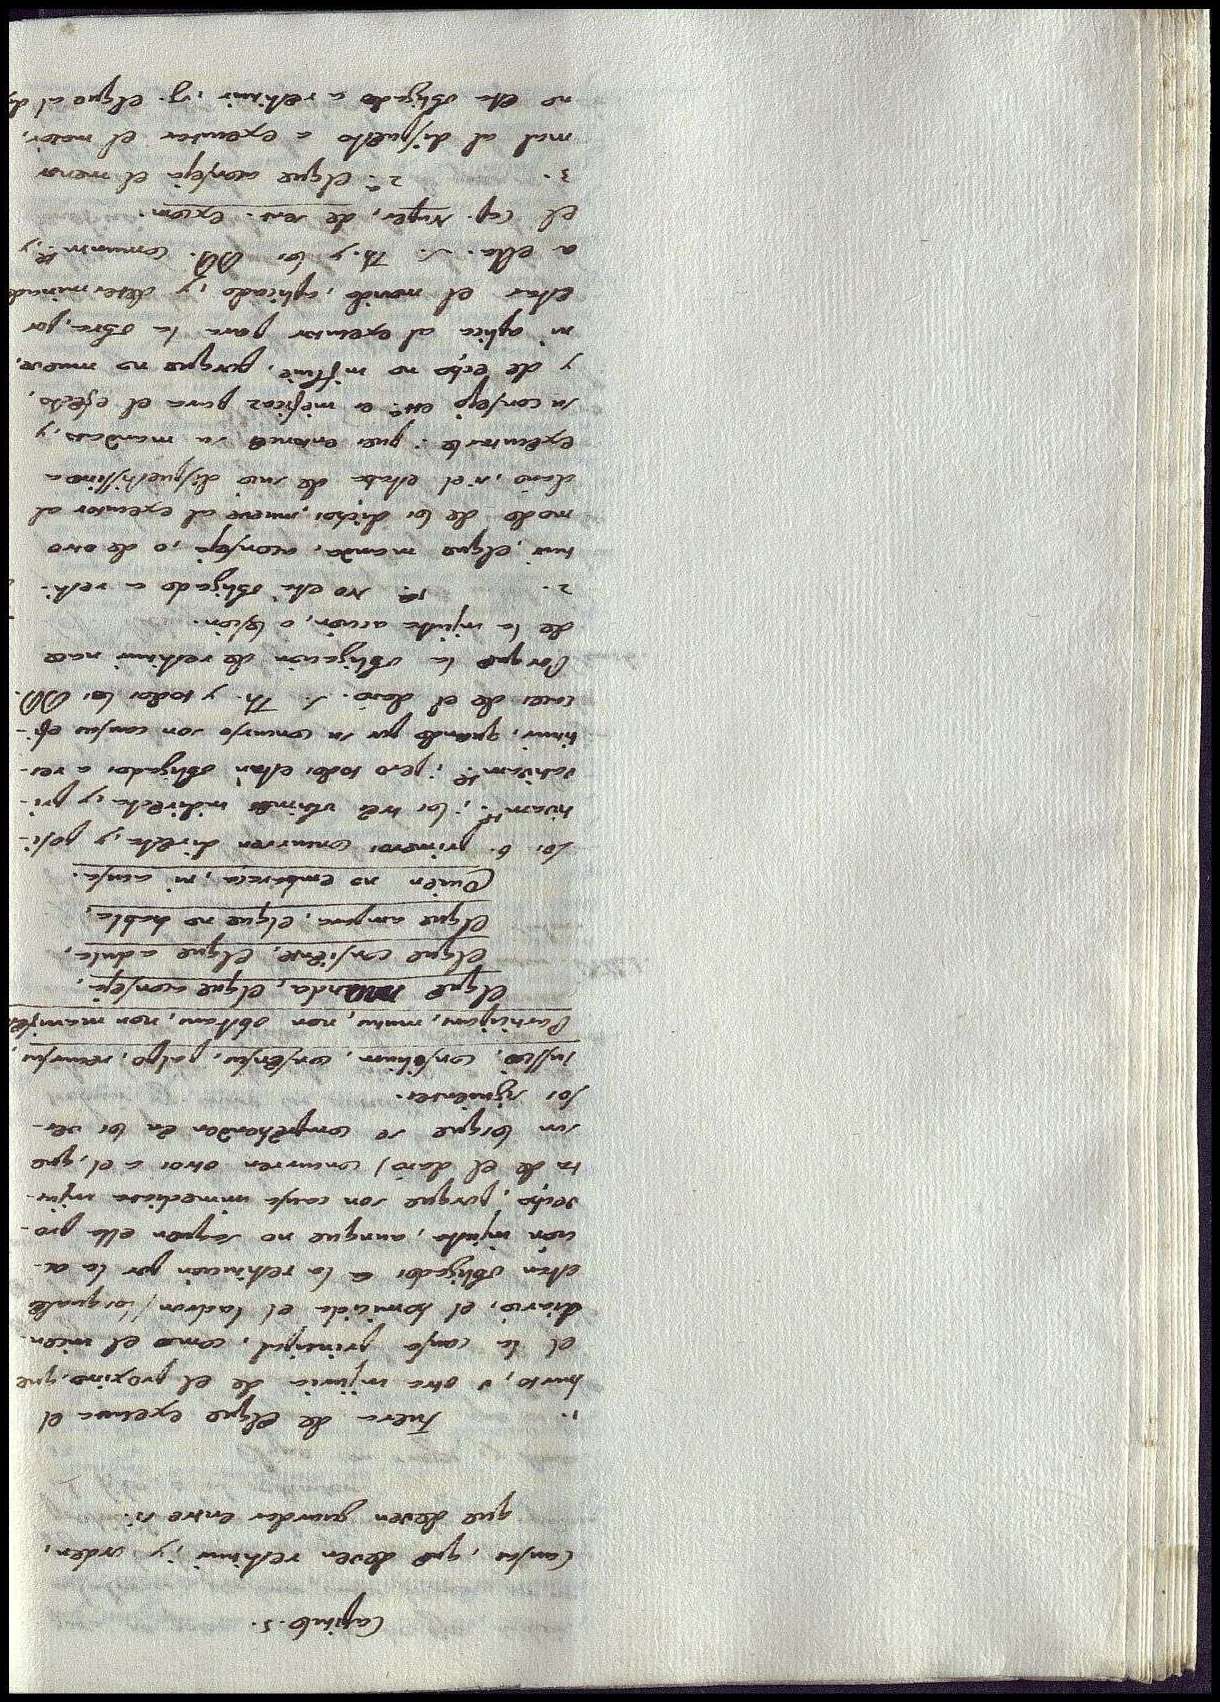 Capitulo. 5.
Causas, que deven restituir, y orden,
que deven guardar entre si.
1. Fuera de elque executa el
hurto, u otra injuria de el proximo, que
el la causa principal, como el incen-
diario, el homicida el ladron (losquale
están obligados a la restitucion por la a-
cion injusta, aunque no saquen ella pro-
vecho, porque son causa immediata injus-
ta de el daño) concurren otros a el, que
son losque se comprehenden en los ver-
sos siguientes.
Jussio, consilium, consensus, palpo, recursus,
Participans, mutus, non obstans, non manifes
Elque manda, elque aconseja,
Elque consiente, elque adula,
Elque ampara, elque no habla,
Quien no embaraza, ni acusa.
Los 6. primeros concurren directa, y posi-
tivam.te; los tres ultimos indirecta, y pri-
vativam.te; pero todos estan obligados a res-
tituir, quando por su concurso son causas efi-
caces de el daño. S. Th. y todos los DD.
Porque la obligacion de restituir nace
de la injusta acción, o lesion.
2. No está obligado a resti-
tuir, elque manda, aconseja, o de otro
modo de los dichos, mueve al executor al
daño, si el estaba de suio dispuestissimo a
executarle: pues entonces su mandato, y
su consejo es ineficaz para el efecto,
y de echo no influie, porque no mueve,
ni aplica al executor para la obra, por
estar el movido, aplicado, y determinado
a ella. S. Th. y los DD. comunm.te y
el cap. Nuper, de sent. excom.
3. 2.a Elque aconseja el menor
mal al dispuesto a executar el maior,
no esta obligado a restituir: y elque al